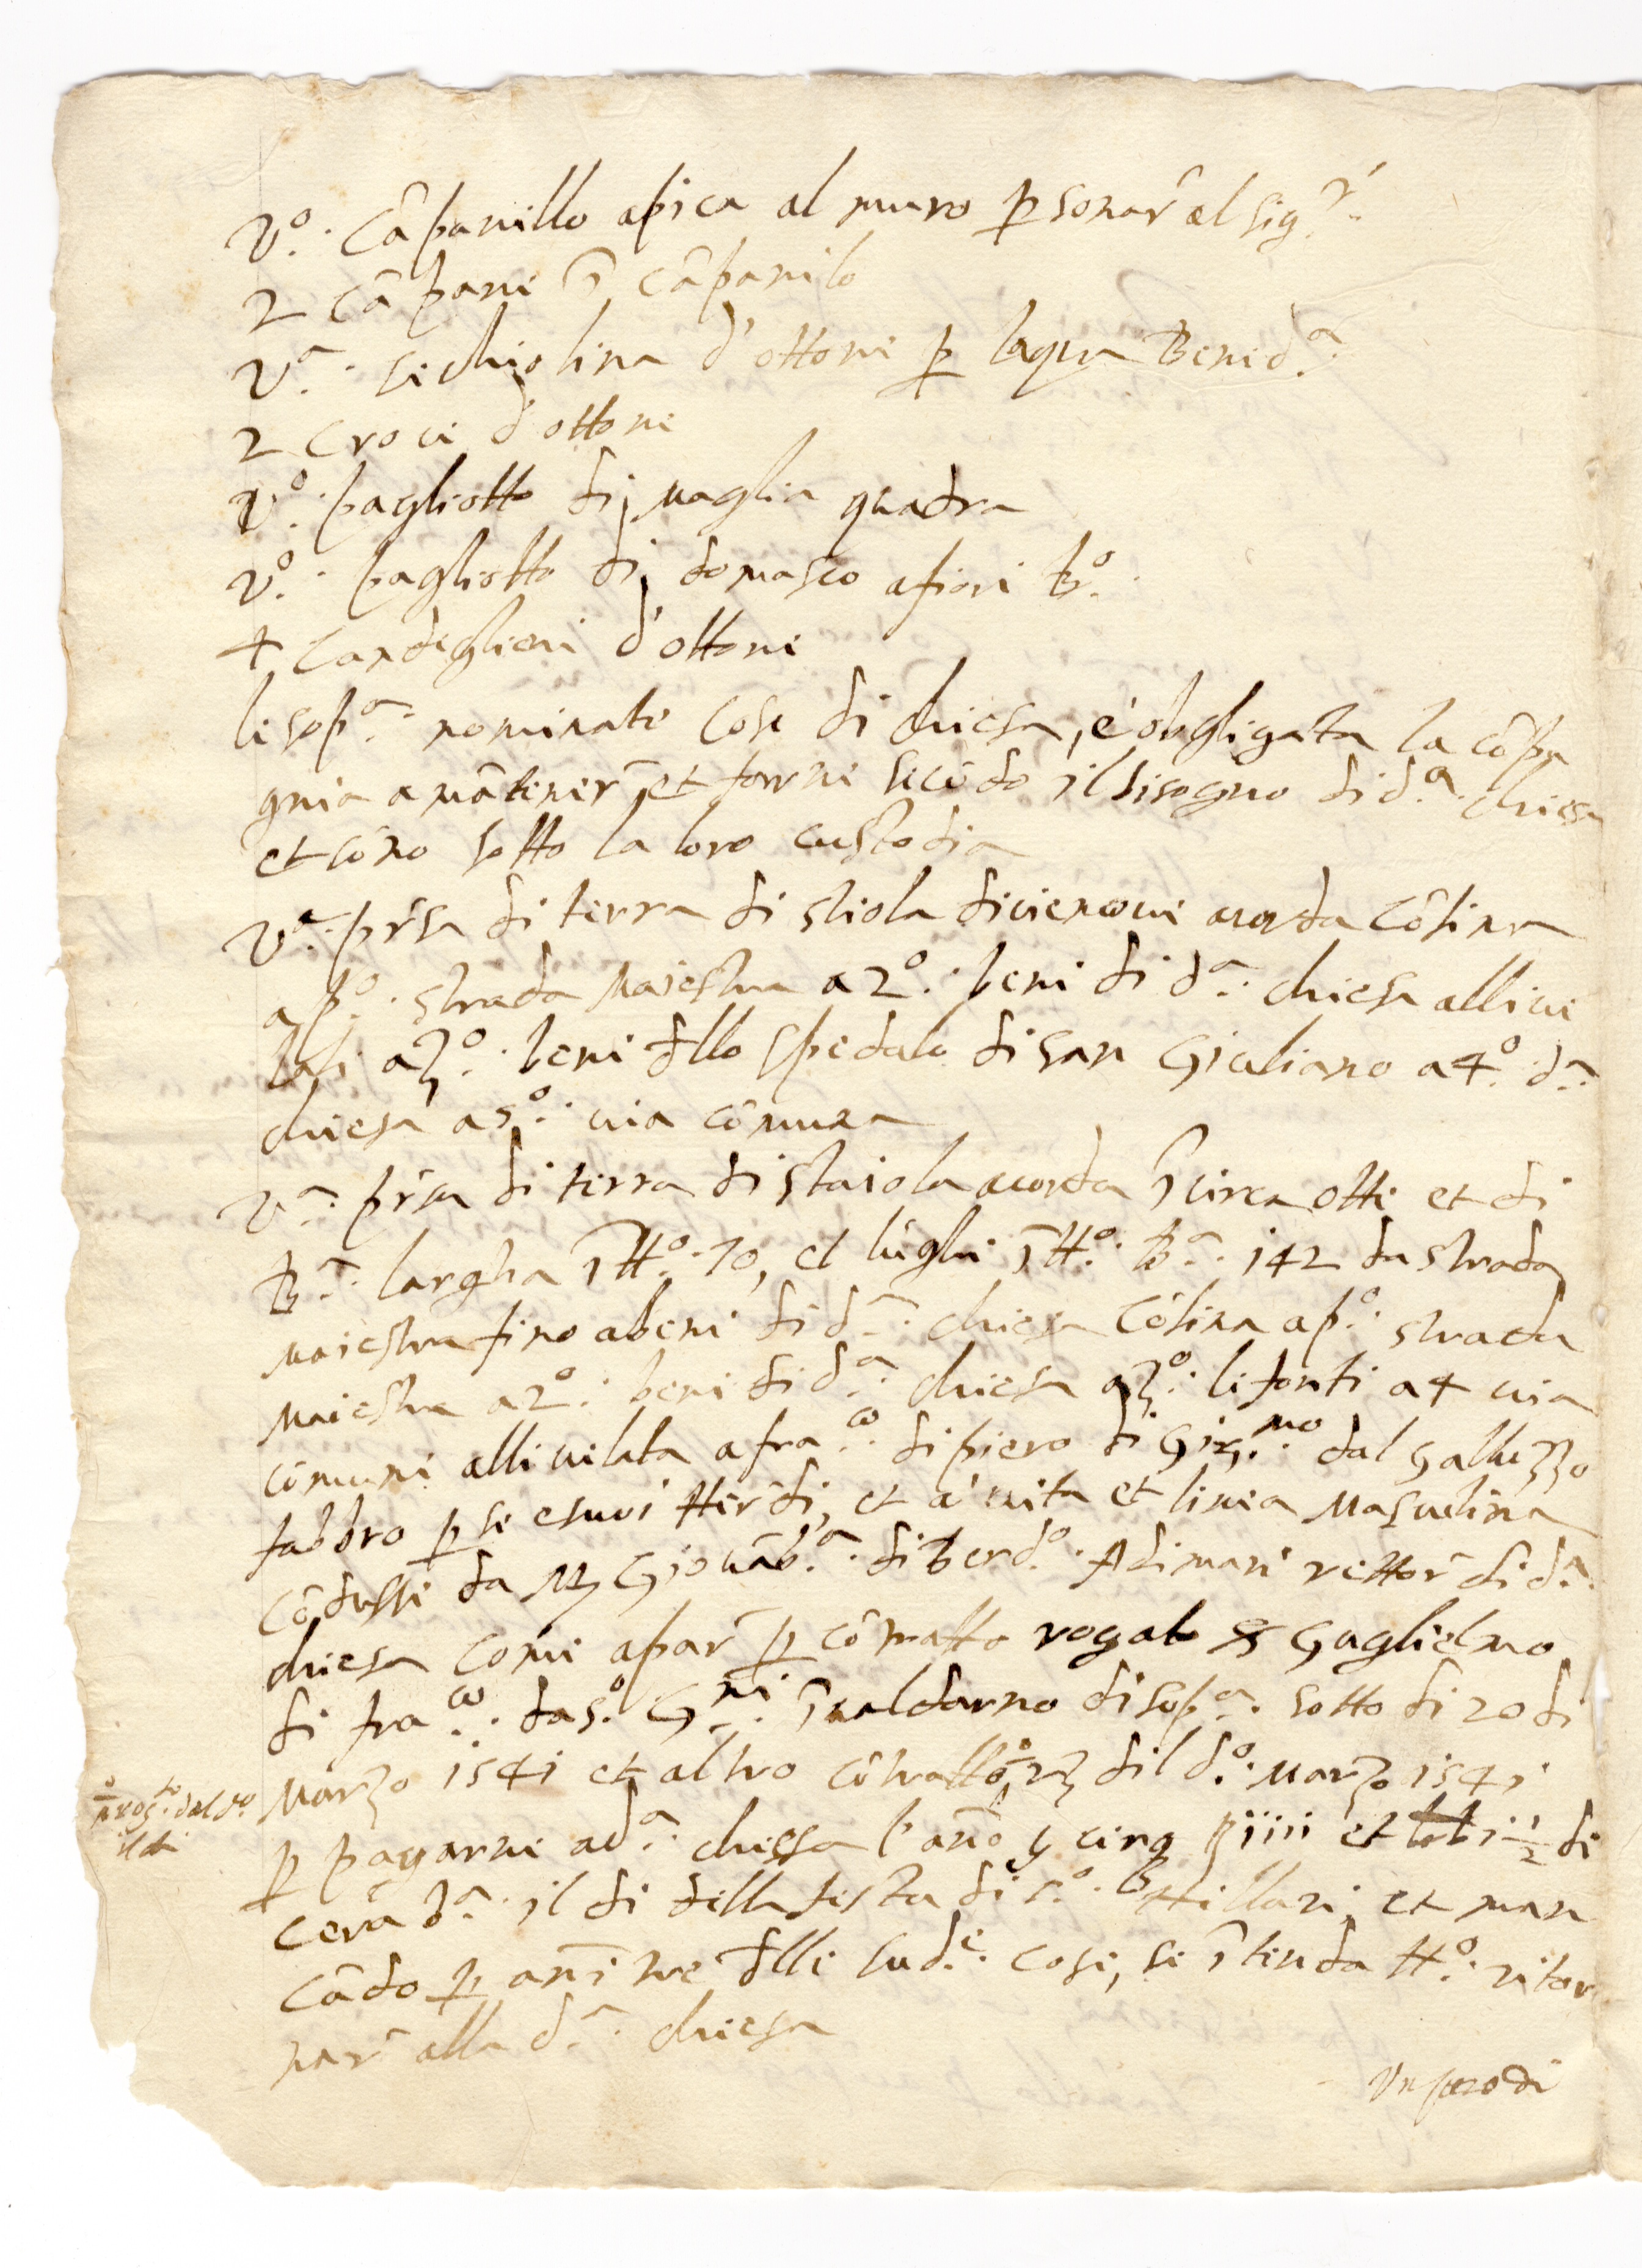 Vº. Cãpanillo apica al muro p sonar̃ al sig.ʳ
2 cãpane ĩ cãpanile
Vª. sechiolina d'ottone p laqua Bened.ª
2 Croci d'ottone
Vº. pagliotto di maglia quadra
Vº. pagliotto di domasco afiori bº.
4 Candeglieri d'ottone
le sopª. nominate cose di chiesa, é obgligata la cõpa
gnia a mãtener̃ et farne secõdo il bisogno di dª. chiesa
et sono sotto la loro custodia
Vª. prẽsa di terra di stiola dicienove acorda cõfina
a pº. strada maestra a 2º. beni di dª. chiesa allive
lati a 3º. beni dllo spedale di san Giuliano a 4º. dª.
chiesa a 5º. via comuna
Vª. prẽsa di terra di staiola acorda ĩ circa otto et di
Bª. largha ĩ ttº. 70, et lũgha ĩ ttº. Bª. 142 da strada
maestra fino abeni di dª. chiesa cõfina a pº. strada
maestra a 2º. beni di dª. chiesa a 3º. le fonti a 4 via
comune allivellata a fra.ᶜᵒ di piero di Gir.ᵐᵒ dal galluzzo
fabbro p se e suoi Herẽdi, et a vita et linea masculina
cõdussi da Mʒ Giovãbª. di berdº. Adimari rettor̃ di dª.
chiesa come apar̃ p cõtratto rogato Guglielmo
di fra.ᶜᵒ da sº. G.ⁿⁱ ĩ valdarno di sopª. sotto di 20 di
Marzo 1541 et altro cõtratto dil dº. marzo 1541
dal dº.
il di
p pagarne a dª. chiesa l'ano cinq iiii et 1½ di
cera bª. il di della festa di sº. Hillari, et man
cãdo p anni tre dlle sudᵉ. cose, se ĩtenda ttº. ritor
nar̃ alla dª. chiesa
Un pezo di